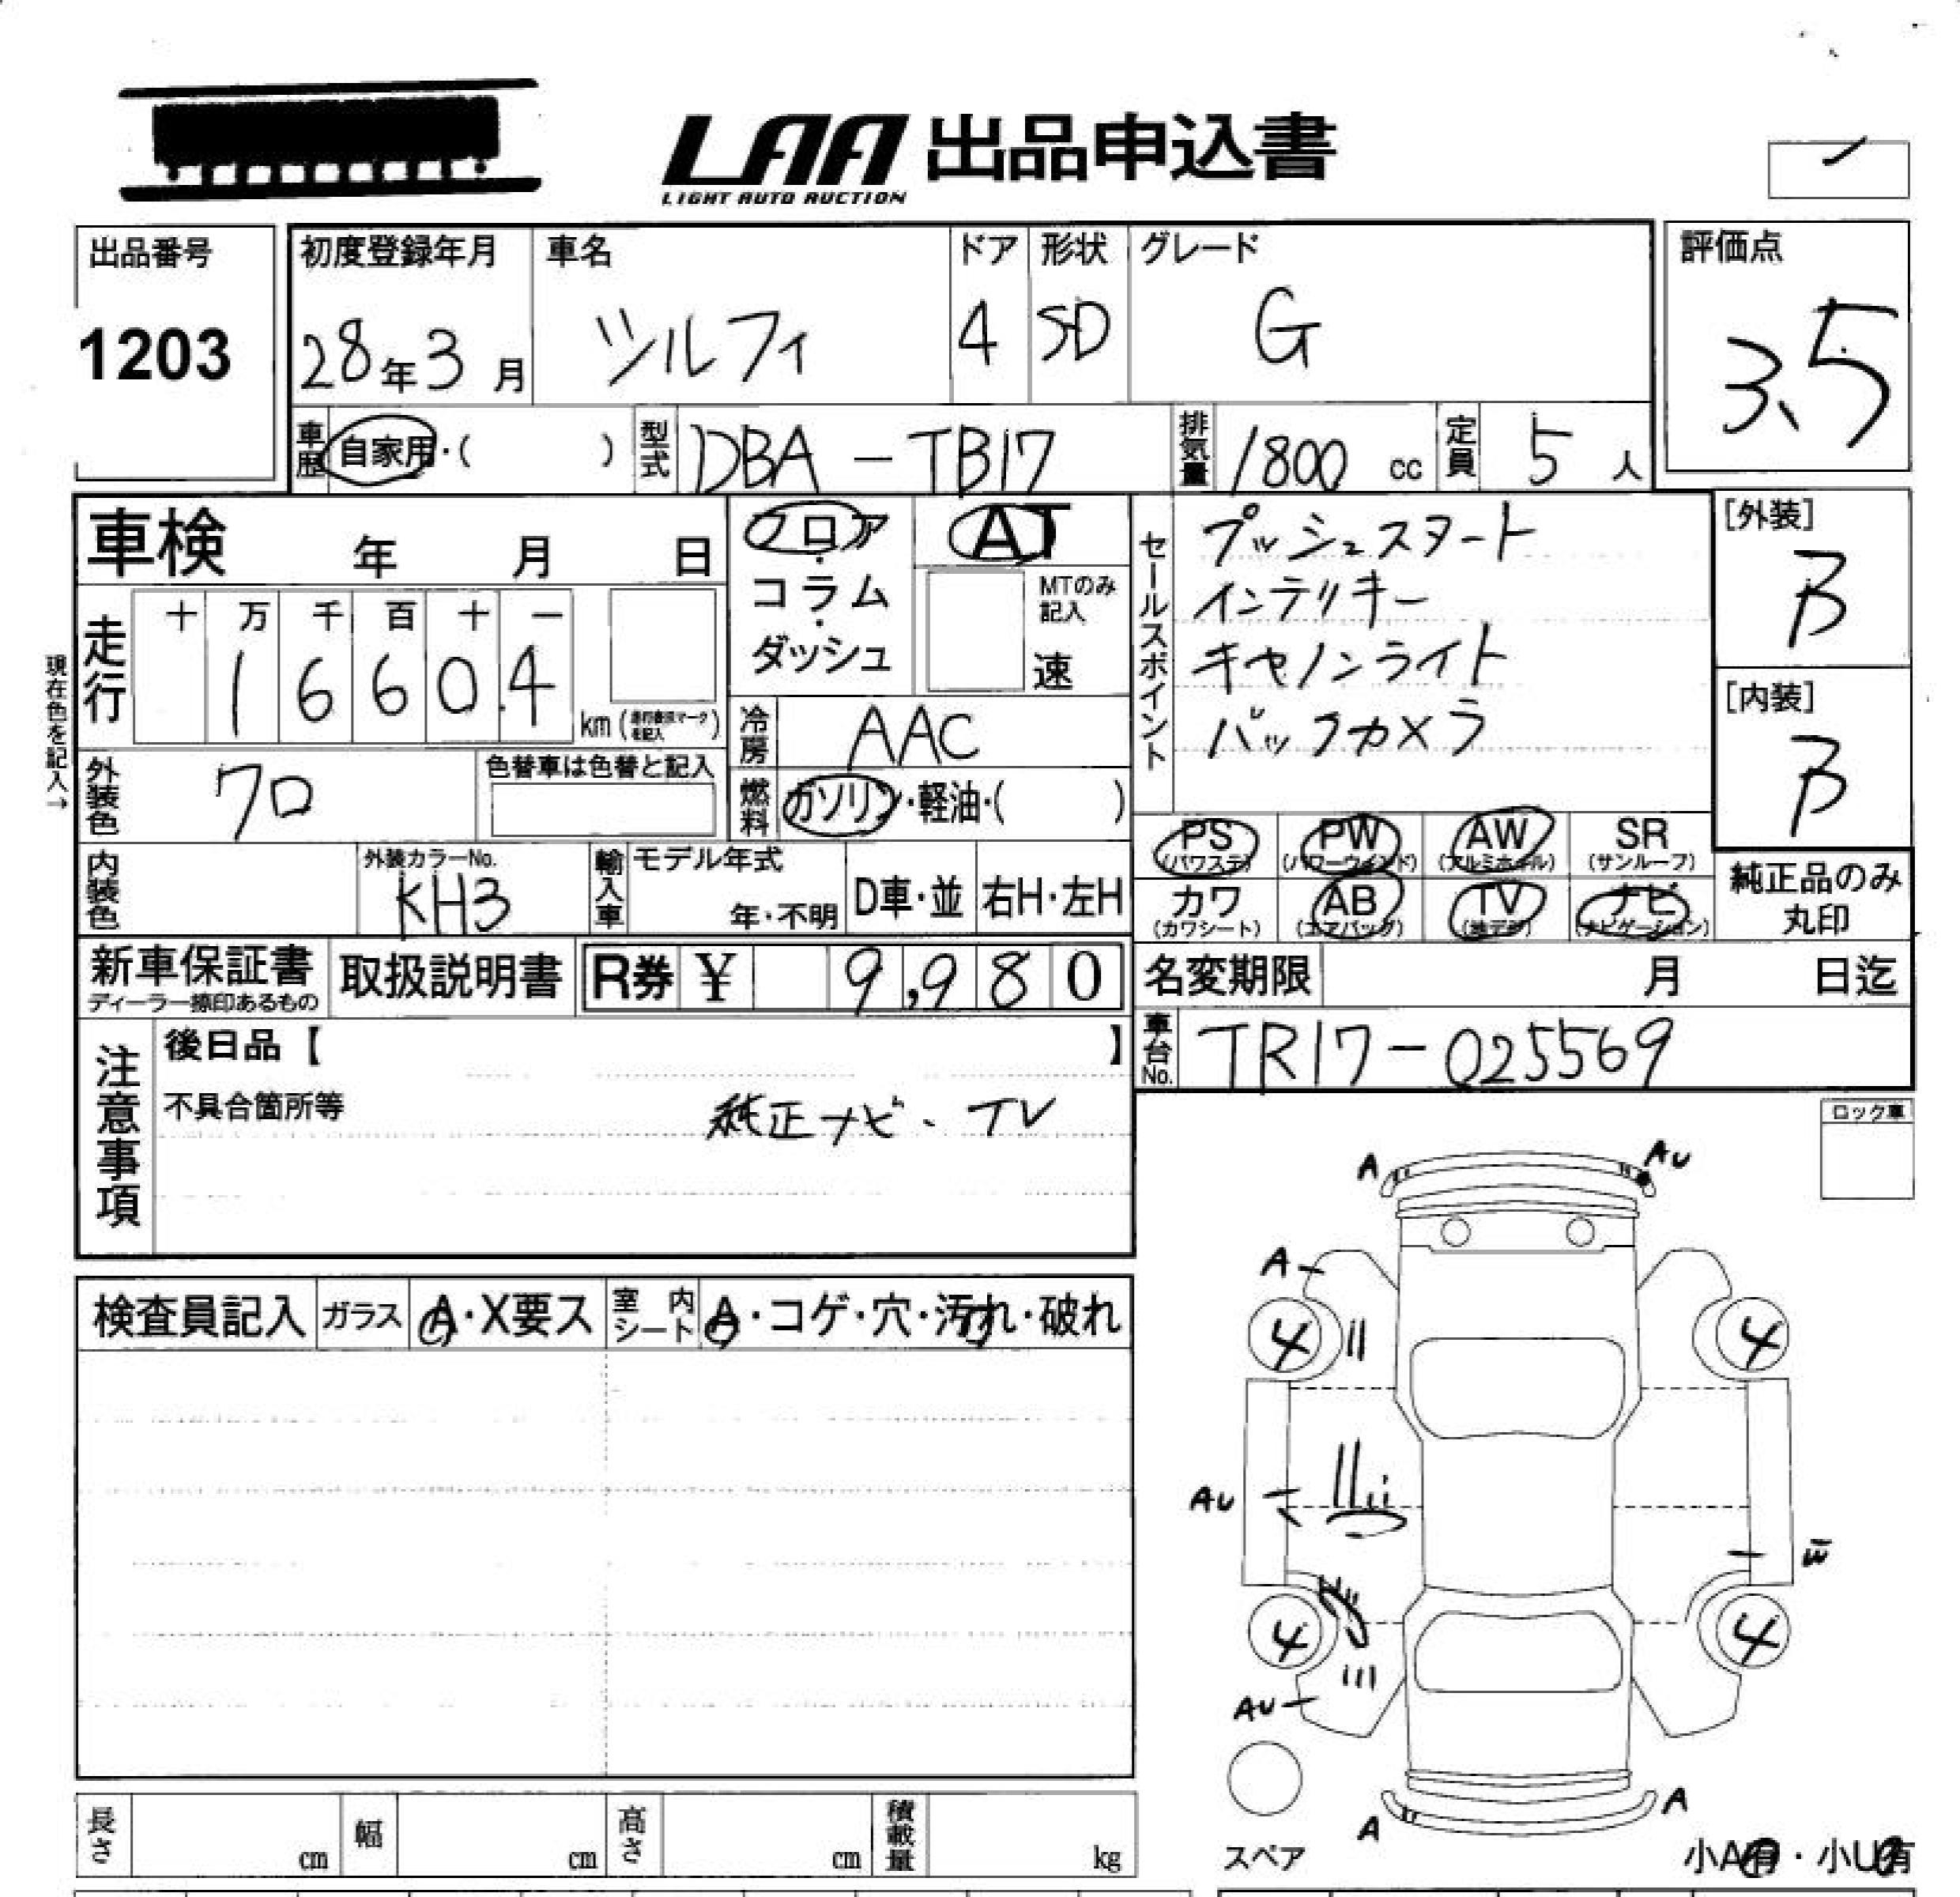 LAA 出品申込書
LIGHT AUTO AUCTION
出品番号
1203
初度登録年月
28年3月
車名
シルフィ
ドア
4
形状
SD
グレード
G
評価点
3.5
車歴 自家用・( )
型式 DBA-TB17
排気量 1800 cc
定員 5 人
車検 年 月 日
フロア・コラム・ダッシュ
AT
MTのみ記入
速
セールスポイント
プッシュスタート
インテリキー
キセノンライト
バックカメラ
[外装]
B
[内装]
B
現在色を記入→
走行
十 万 千 百 十 一
1 6 6 0.4
km(
)
冷房 AAC
燃料 ガソリン・軽油・( )
外装色 クロ
色替車は色替と記入
PS (パワステ)
PW (パワーウインド)
AW (アルミホイル)
SR (サンルーフ)
カワ (カワシート)
AB (エアバッグ)
TV (地デジ)
ナビ (ナビゲーション)
純正品のみ
丸印
内装色
外装カラーNo.
KH3
輸入車
モデル年式
年・不明
D車・並
右H・左H
新車保証書
ディーラー捺印あるもの
取扱説明書
R券 ¥ 9,980
名変期限 月 日迄
車台No. TR17-025569
注意事項
後日品【 】
不具合箇所等
純正ナビ、TV
ロック車
A
AU
A
4
4
AU
4
4
AU
A
A
スペア
小A有・小U有
検査員記入
ガラス A・X要ス
室内シート A・コゲ・穴・汚れ・破れ
長さ cm
幅 cm
高さ cm
積載量 kg